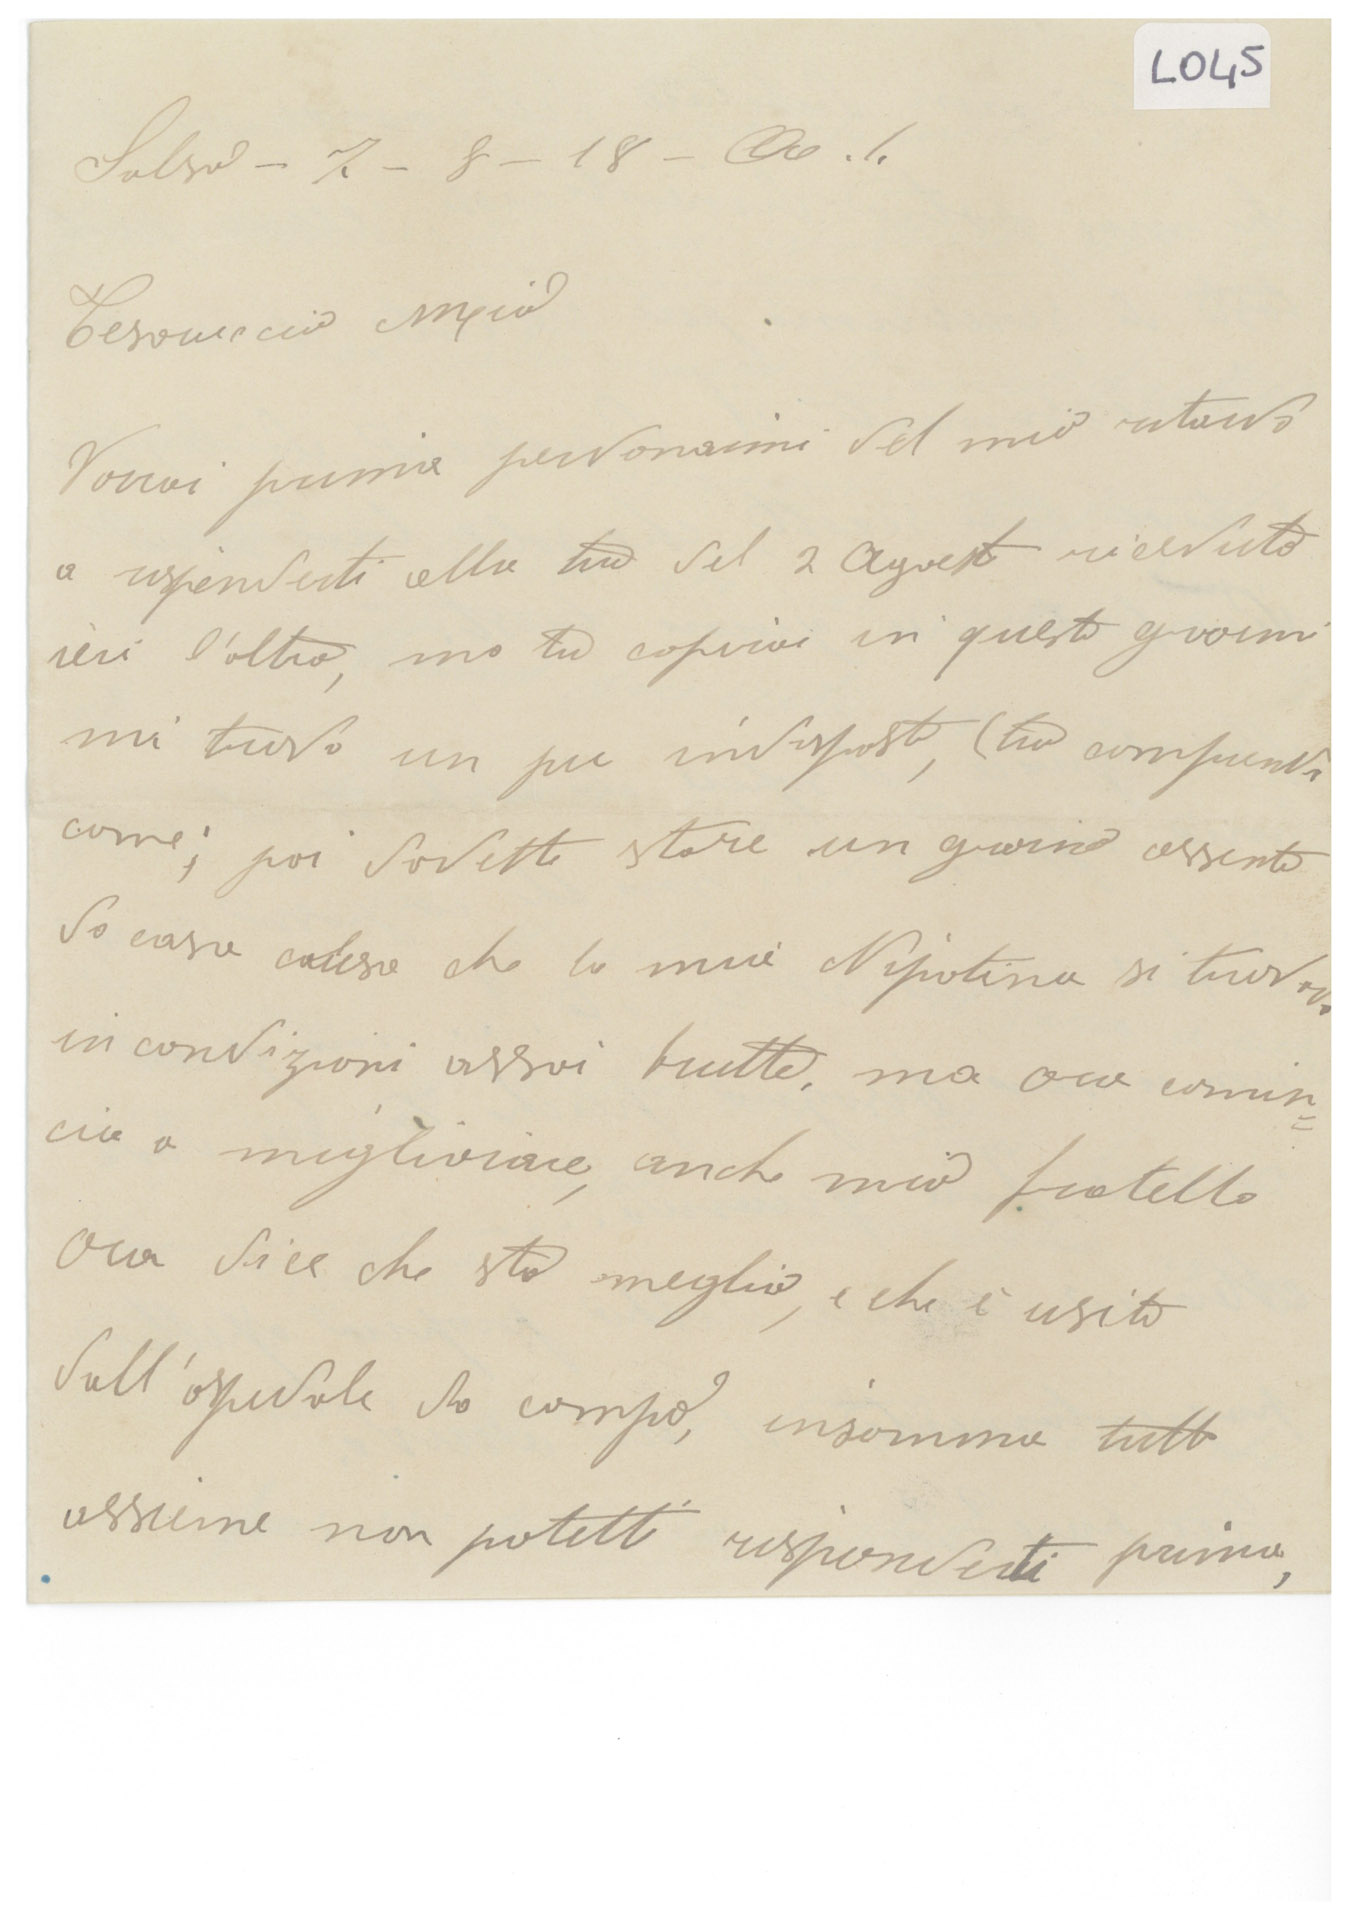 L045
Salso - 7 - 8 - 18 -
Tesoruccio Mio
Vorrai prima perdonarmi del mio ritardo
a risponderti alla tua del 2 Agosto ricevuta
ieri l'altro, ma tu caprirai in questi giorni
mi trovo un po indisposto, (tu comprendi
come; poi dovetti stare un giorno assente
da casa causa che la mia Nipotina si trovava
in condizioni assai brutte, ma ora comin=
cia a migliorare, anche mio fratello
ora dice che sta meglio, e che è usito
dall'ospedale da campo, insomma tutto
assieme non potetti risponderti prima,